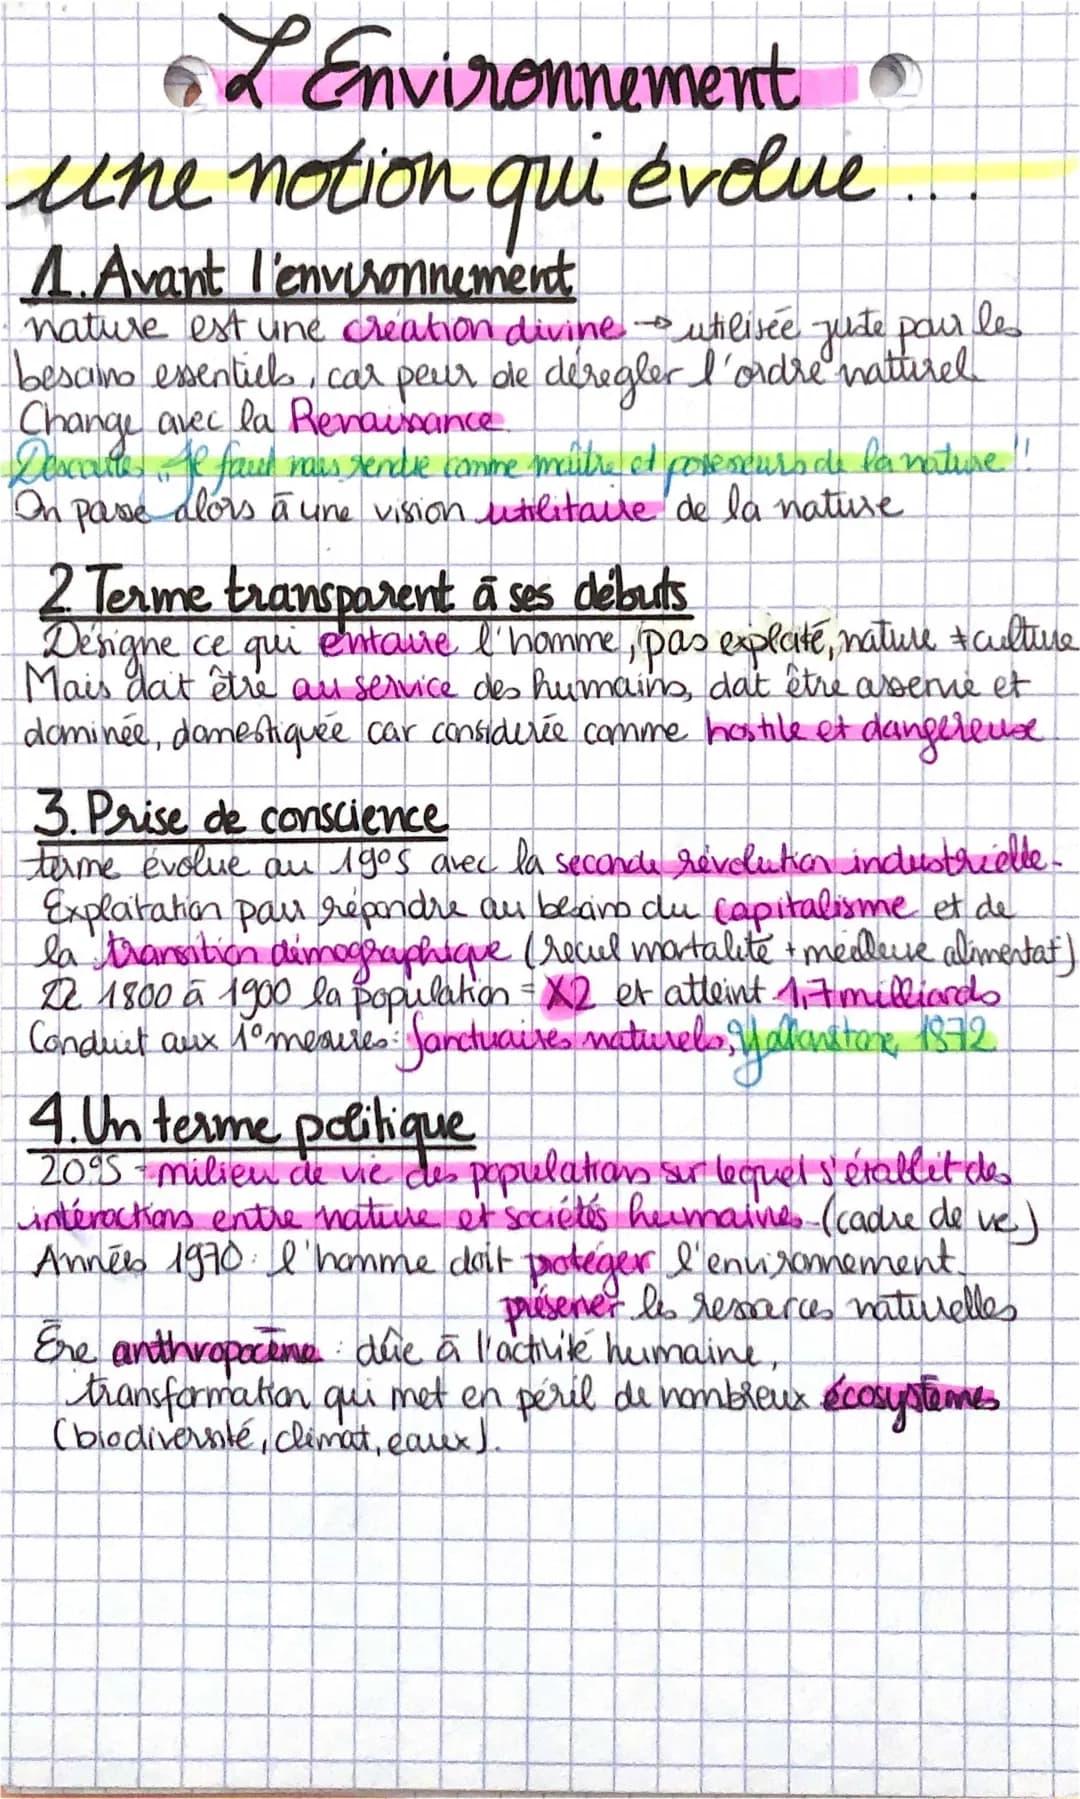 L'Environnement
une notion qui évolue...
1. Avant l'environnement
nature est une création divine → utilisée juste pour les
besoins essentiels, car peur de dérégler l'ordre naturel
Change avec la Renaissance
Descartes "Il faut nous rendre comme maître et possesseurs de la nature"
On passe alors à une vision utilitaire de la nature
2. Terme transparent à ses débuts
Désigne ce qui entoure l'homme, pas exploité, nature ≠ culture
Mais doit être au service des humains, doit être asservie et
dominée, domestiquée car considérée comme hostile et dangereuse
3. Prise de conscience
terme évolue au 19°s avec la seconde révolution industrielle.
Exploitation pour répondre au besoins du capitalisme et de
la transition démographique (recul mortalité + meilleure alimentat°)
1800 à 1900 la population = X2 et atteint 1,7 milliards
Conduit aux 1° mesures: sanctuaires naturels, Yellowstone, 1872
4. Un terme politique
20°S = milieu de vie des populations sur lequel s'établit des
intéractions entre nature et sociétés humaines (cadre de vie)
Années 1970: l'homme doit protéger l'environnement.
préserver les ressources naturelles
Ère anthropocène: dûe à l'activité humaine,
transformation qui met en péril de nombreux écosystèmes
(biodiversité, climat, eaux).